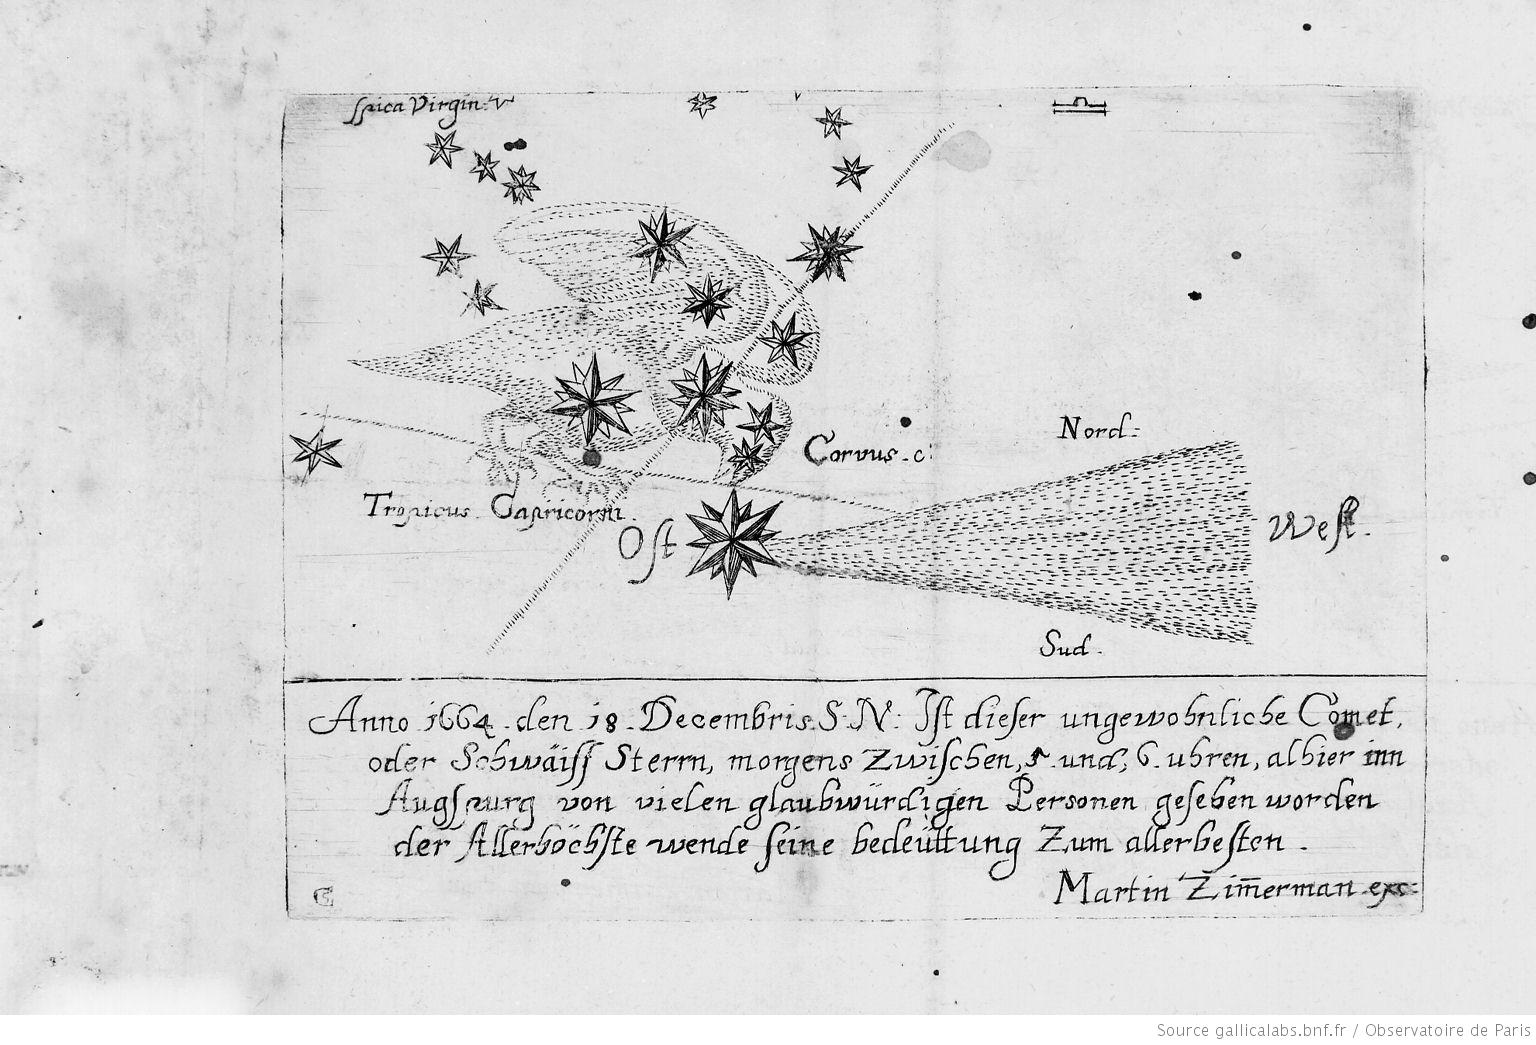 Spica Virgin: V
Nord:
Corvus. c:
Tropicus. Capricorni.
Ost
West.
Sud.
Anno 1664. den 18. Decembris. S. N: Ist dieser ungewohnliche Comet,
oder Schwäiff Sterrn, morgens zwischen, 5. und, 6. uhren, alhier inn
Augspurg von vielen glaubwürdigen Personen gesehen worden
der Allerhöchste wende seine bedeüttung Zum allerbesten.
Martin Zim̄erman exc:
Source gallicalabs.bnf.fr / Observatoire de Paris